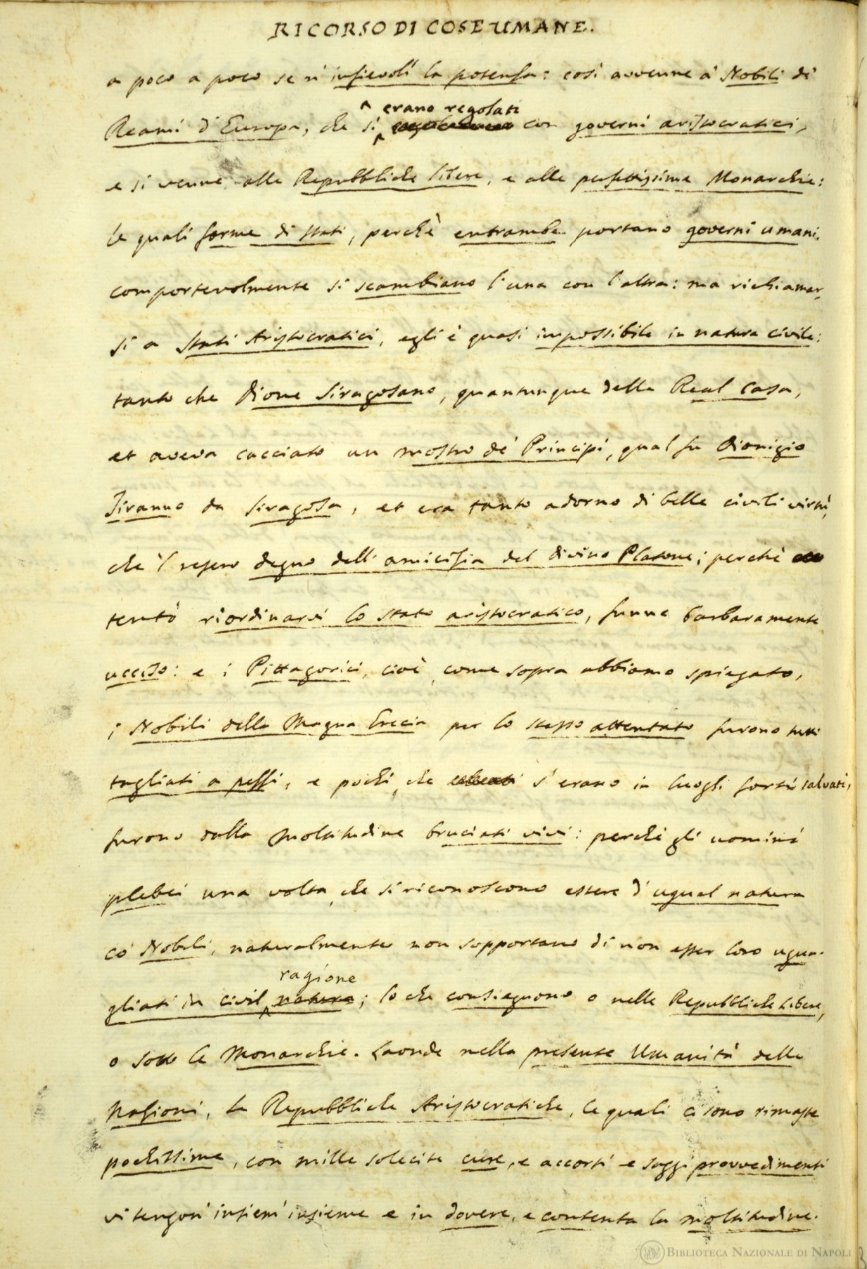 RICORSO DI COSE UMANE.
a poco a poco se n' infievolì la potenza: così avvenne a' Nobili de'
erano regolati
Reami d'Europa, che si con governi aristocratici,
e si venne alle Repubbliche libere, e alle perfettissime Monarchie:
le quali forme di stati, perchè entrambe portano governi umani,
comportevolmente si scambiano l'una con l'altra: ma richiamar-
si a Stati Aristocratici, egli è quasi impossibile in natura civile:
tanto che Dione Siragosano, quantunque della Real Casa,
et aveva cacciato un mostro de' Principi, qual fu Dionigio
Tiranno da Siragosa, et era tanto adorno di belle civili virtù,
che 'l resero degno dell'amicizia del divino Platone; perchè
tentò riordinarvi lo stato aristocratico, funne barbaramente
ucciso: e i Pittagorici, cioè, come sopra abbiamo spiegato,
i Nobili della Magna Grecia per lo stesso attentato furono tutti
tagliati a pezzi, e pochi, che s'erano in luoghi forti salvati,
furono dalla moltitudine bruciati vivi: perchè gli uomini
plebei una volta, che si riconoscono essere d'ugual natura
co' Nobili, naturalmente non sopportano di non esser loro ugua-
ragione
gliati in civil natura; lo che consieguono o nelle Repubbliche Libere,
o sotto le Monarchie. Laonde nella presente Umanità delle
Nazioni, le Repubbliche Aristocratiche, le quali ci sono rimaste
pochissime, con mille solecite cure, e accorti e saggi provvedimenti
vi tengon' insiem' insieme e in dovere, e contenta la moltitudine.
BIBLIOTECA NAZIONALE DI NAPOLI